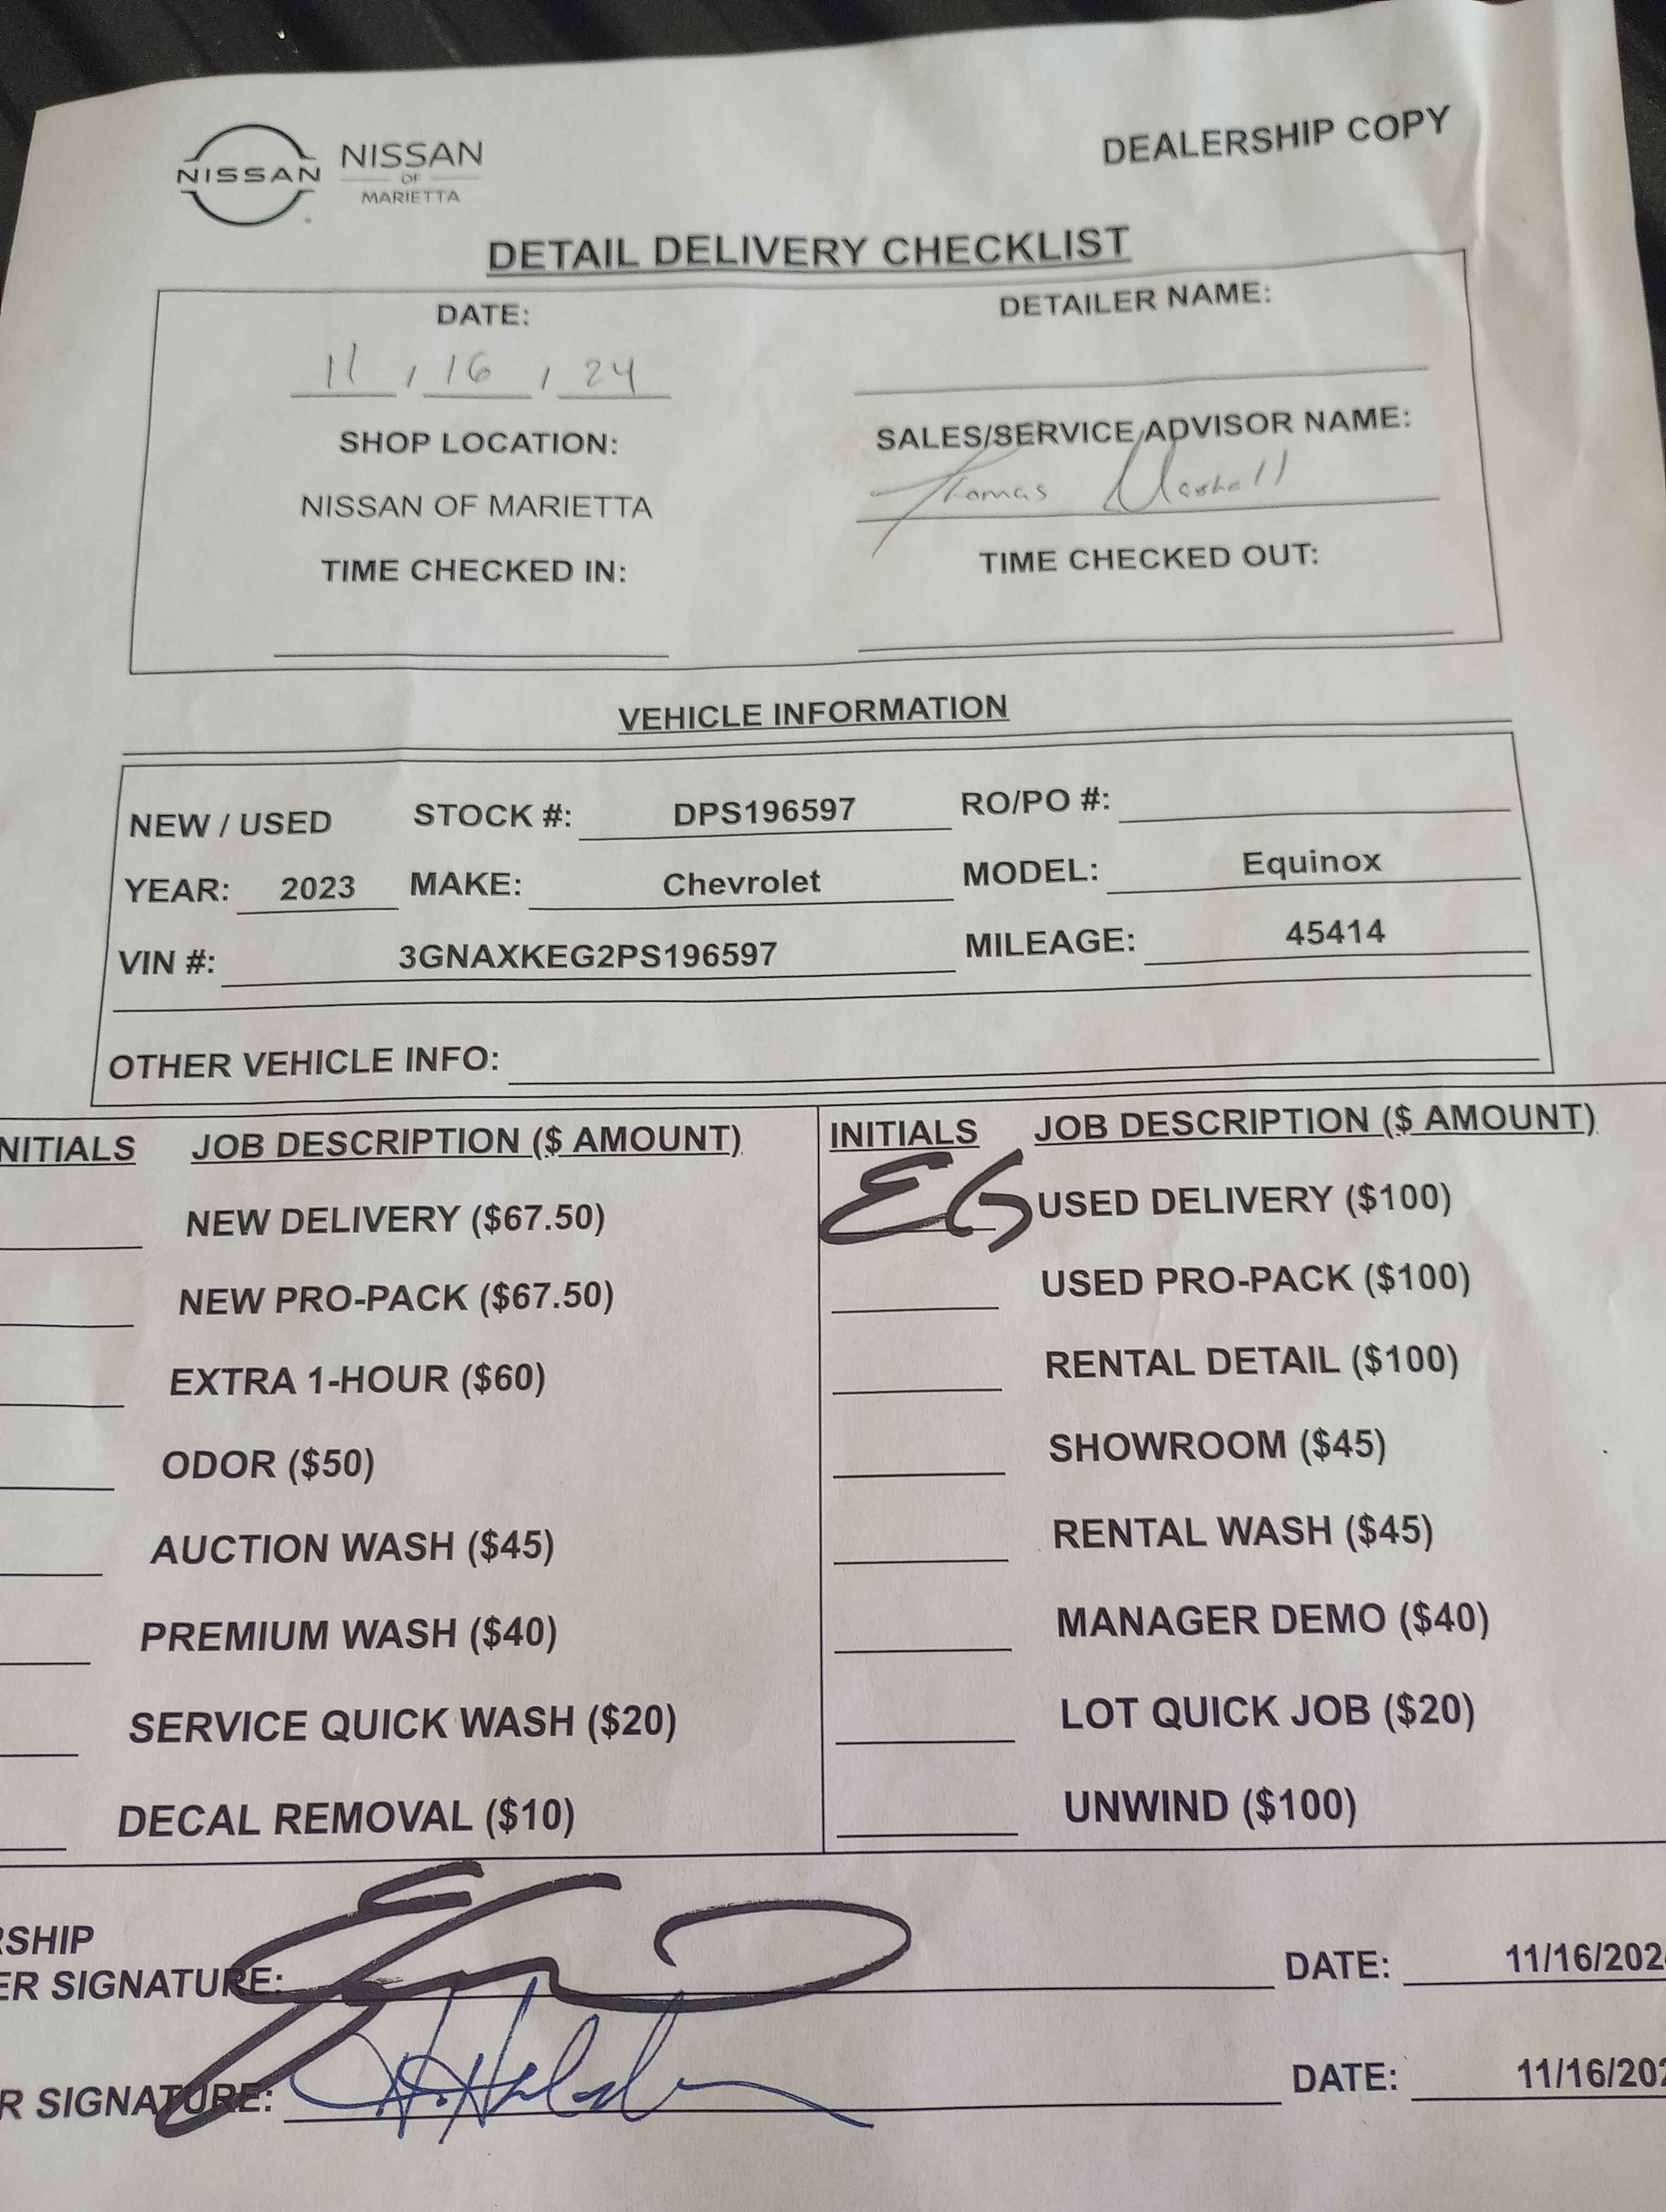 NISSAN
NISSAN
OF
MARIETTA
DEALERSHIP COPY
DETAIL DELIVERY CHECKLIST
DATE:
11 / 16 / 24
DETAILER NAME:
SHOP LOCATION:
NISSAN OF MARIETTA
SALES/SERVICE ADVISOR NAME:
Thomas Marshall
TIME CHECKED IN:
TIME CHECKED OUT:
VEHICLE INFORMATION
NEW / USED STOCK #: DPS196597 RO/PO #:
YEAR: 2023 MAKE: Chevrolet MODEL: Equinox
VIN #: 3GNAXKEG2PS196597 MILEAGE: 45414
OTHER VEHICLE INFO:
NITIALS JOB DESCRIPTION ($ AMOUNT)
NEW DELIVERY ($67.50)
NEW PRO-PACK ($67.50)
EXTRA 1-HOUR ($60)
ODOR ($50)
AUCTION WASH ($45)
PREMIUM WASH ($40)
SERVICE QUICK WASH ($20)
DECAL REMOVAL ($10)
INITIALS JOB DESCRIPTION ($ AMOUNT)
EG USED DELIVERY ($100)
USED PRO-PACK ($100)
RENTAL DETAIL ($100)
SHOWROOM ($45)
RENTAL WASH ($45)
MANAGER DEMO ($40)
LOT QUICK JOB ($20)
UNWIND ($100)
RSHIP
ER SIGNATURE: DATE: 11/16/202
R SIGNATURE: DATE: 11/16/202